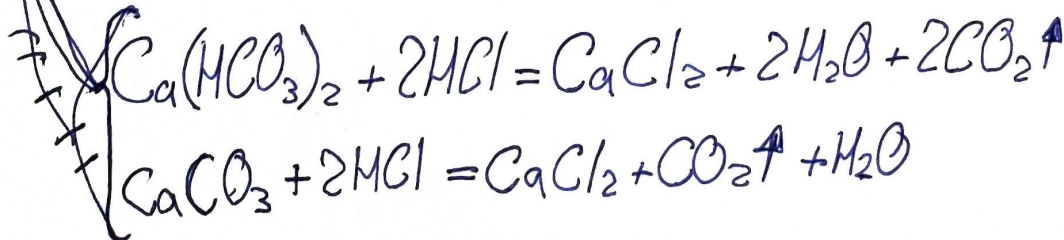 Ca(HCO₃)₂ + 2HCl = CaCl₂ + 2H₂O + 2CO₂↑
CaCO₃ + 2HCl = CaCl₂ + CO₂↑ + H₂O